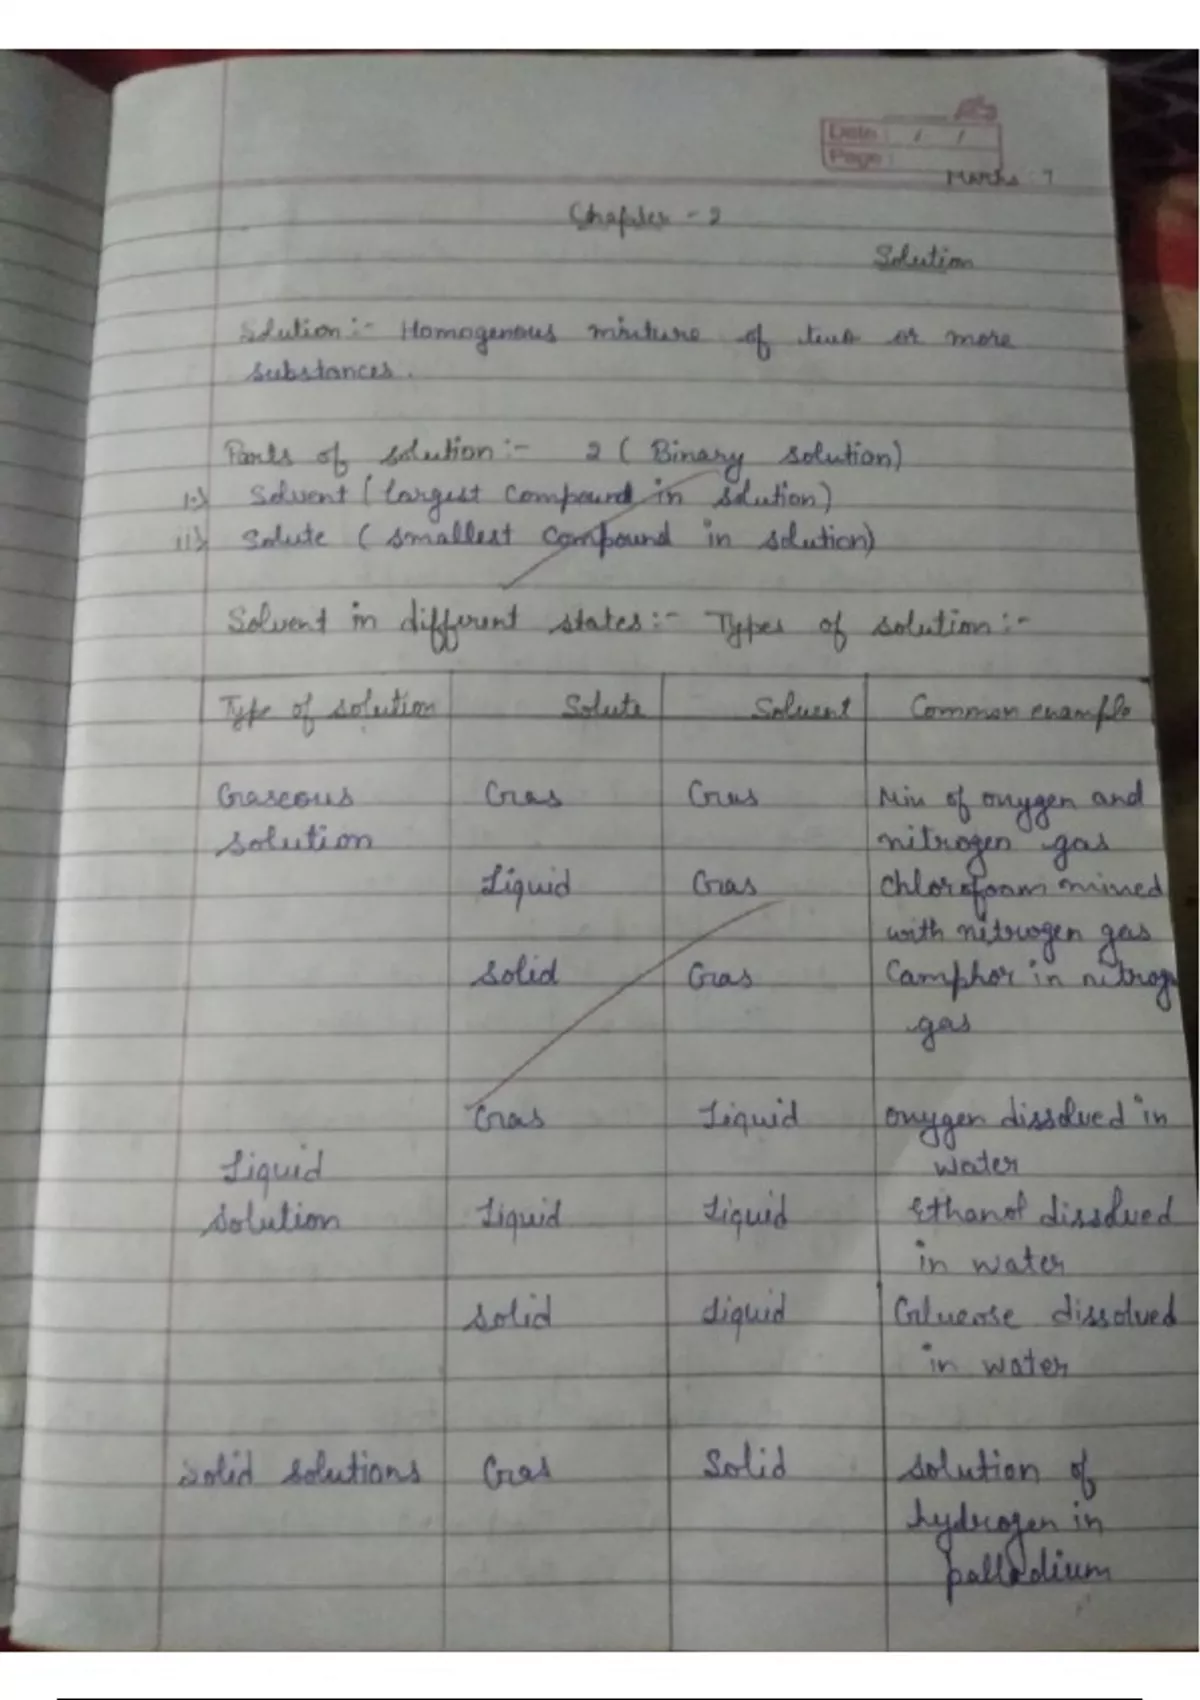 Date : / /
Page :
Marks : 7
Chapter - 2
Solution
Solution :- Homogenous mixture of two or more
substances.
Parts of solution :- 2 ( Binary solution)
i.) Solvent ( largest compound in solution)
ii) Solute ( smallest compound in solution)
Solvent in different states :- Types of solution :-
Type of solution Solute Solvent Common example
Gaseous Gas Gas Mix of oxygen and
solution nitrogen gas
Liquid Gas Chlorofoam mixed
with nitrogen gas
Solid Gas Camphor in nitrog
gas
Gas Liquid oxygen dissolved in
Liquid water
solution Liquid Liquid Ethanol dissolved
in water
Solid Liquid Glucose dissolved
in water
Solid solutions Gas Solid solution of
hydrogen in
palladium